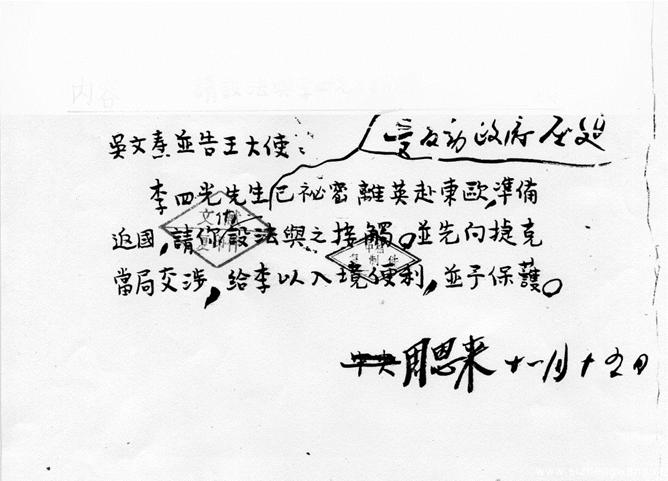 内容
受反動政府压迫
吳文燾並告王大使：
李四光先生已祕密離英赴東歐,準備
返國,請你設法與之接觸。並先向捷克
當局交涉,給李以入境便利,並予保護。
中央周恩来 十一月十五日
文献
复制件